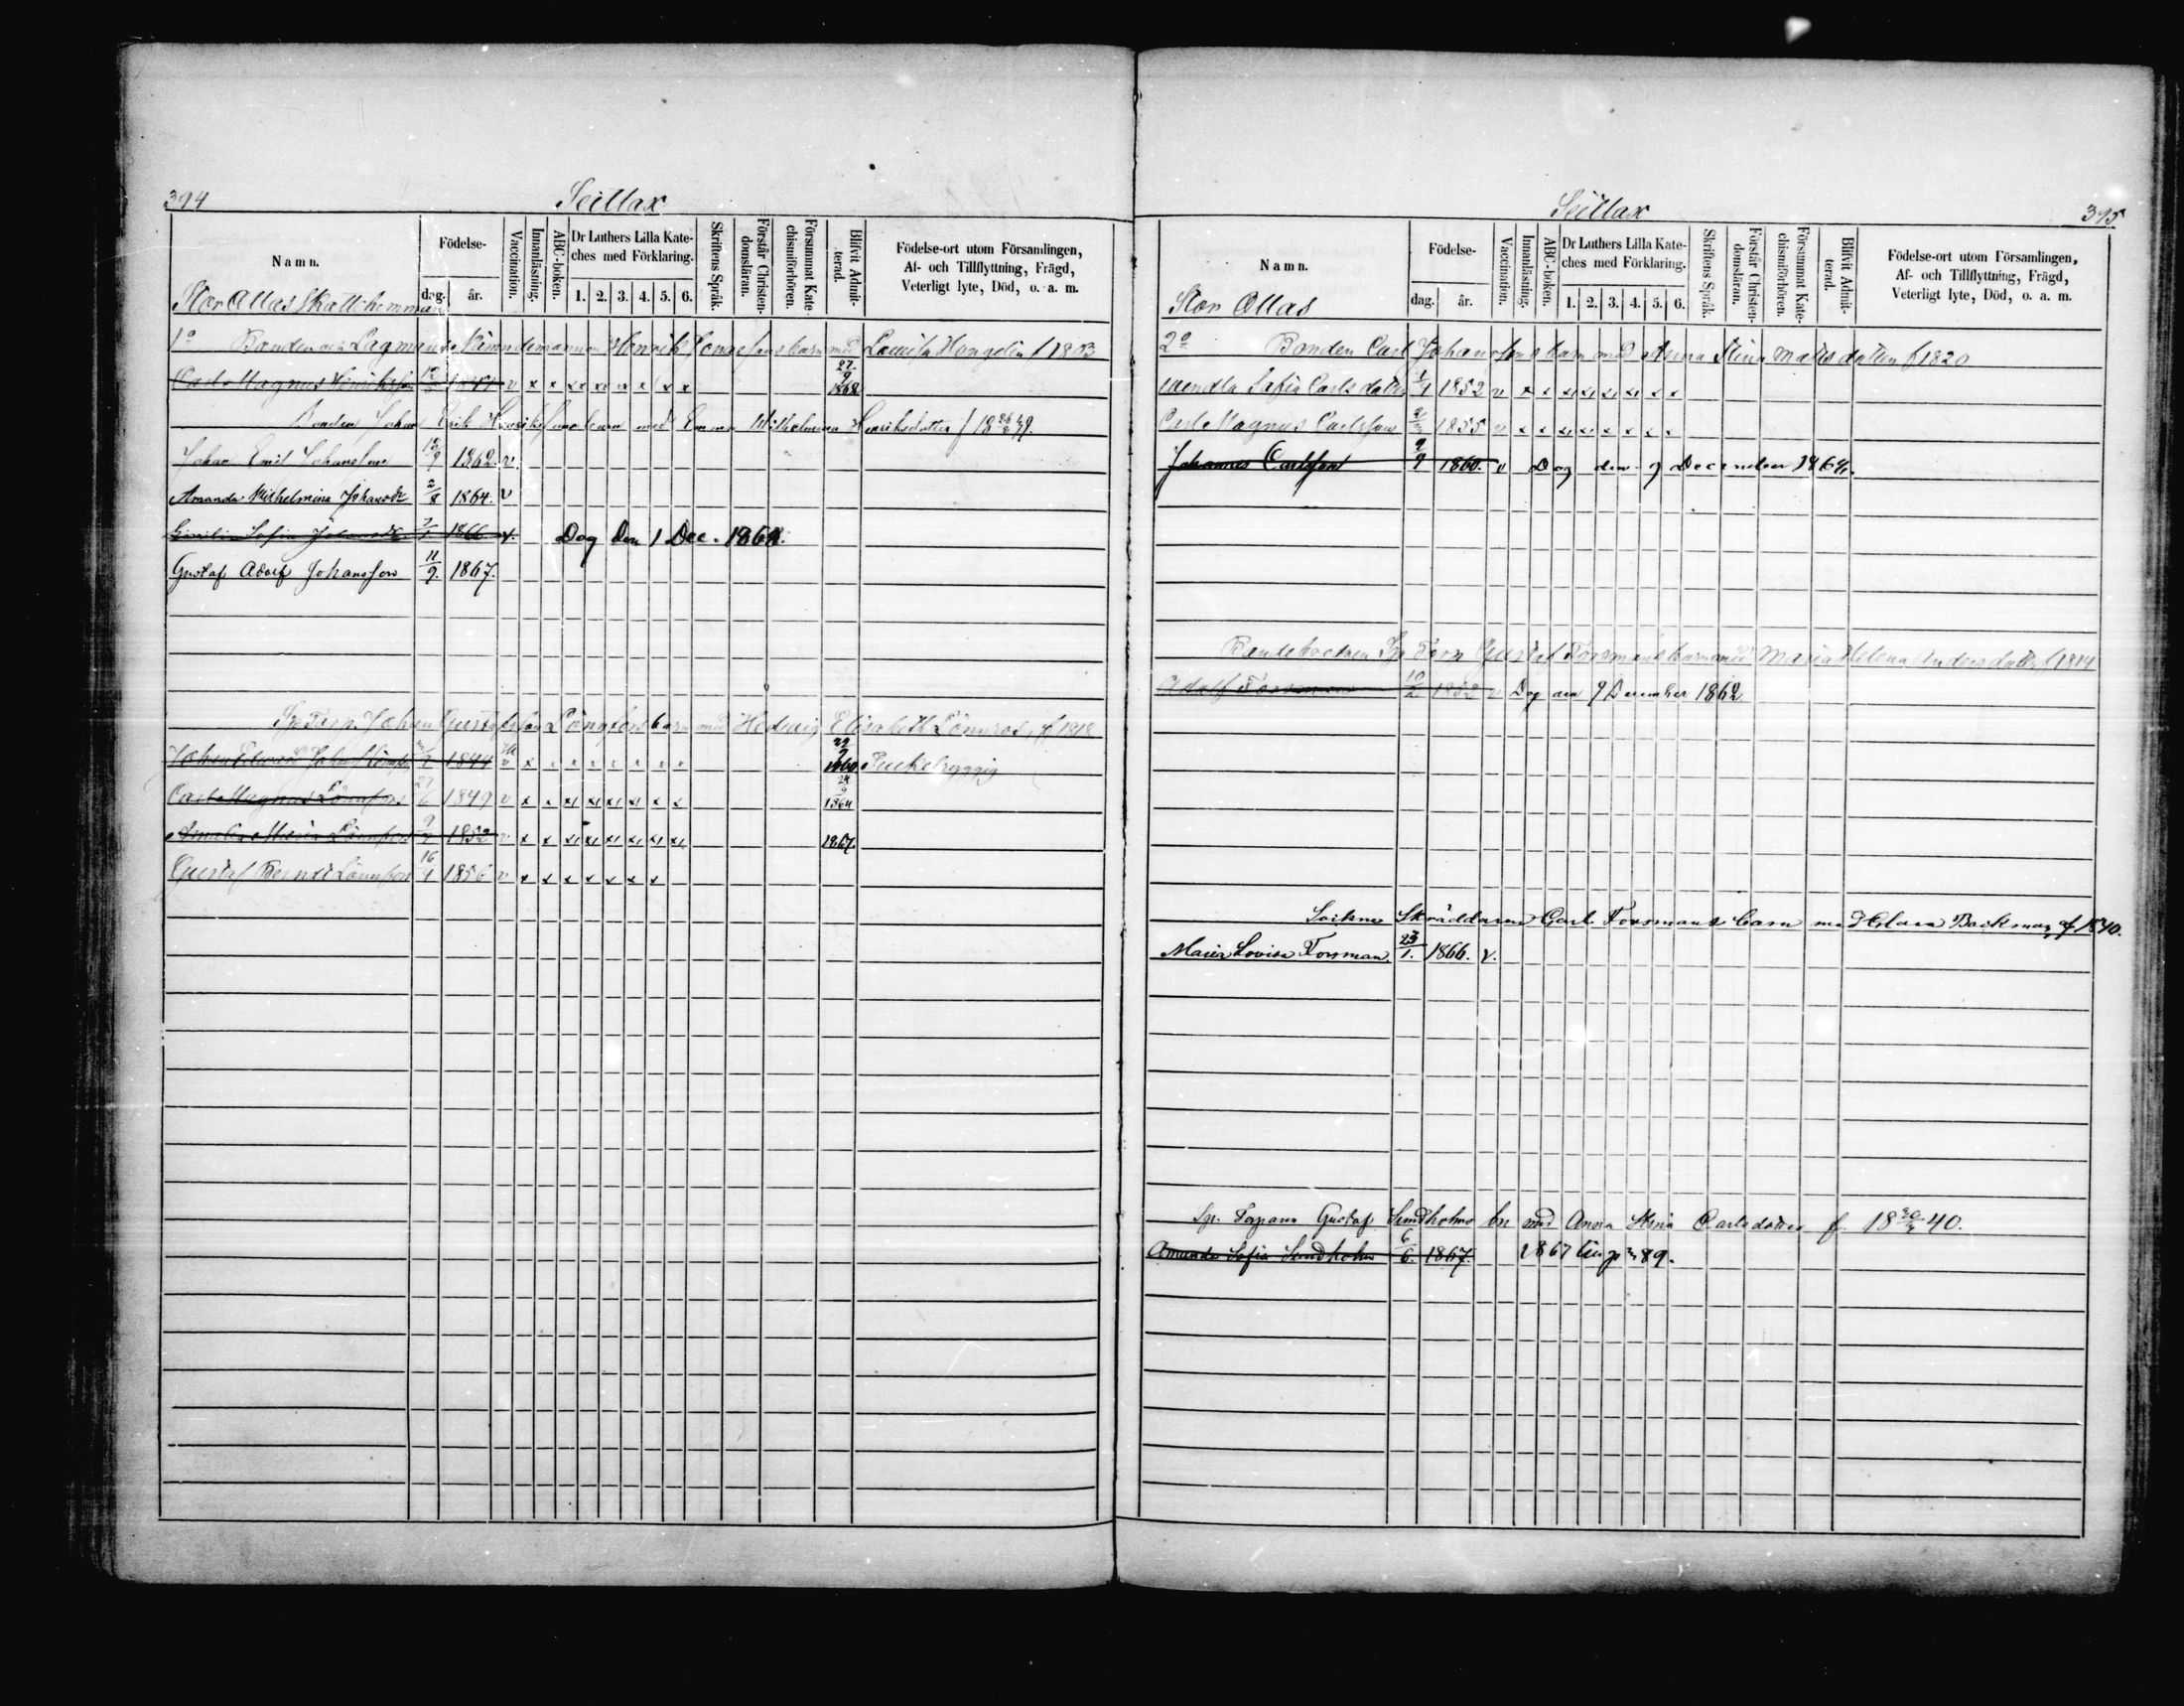 394
Seitlax
Namn.
Födelse-
dag.
år.
Vaccination.
Innanläsning.
ABC-boken.
Dr Luthers Lilla Kate-
ches med Förklaring.
1. 2. 3. 4. 5. 6.
Skriftens Språk.
Förstår Christen-
domsläran.
Försummat Kate-
chismiförhören.
Blifvit Admit-
terad.
Födelse-ort utom Församlingen,
Af- och Tillflyttning, Frägd,
Veterligt lyte, Död, o. a. m.
Stor Ollas Skattehemman
1o Bonden och Lagmans Nämndemannen Henrik barn med Lovisa Hongelin f 1803
27/9
Carl Magnus v x x x x x x x x 1868
Bonden Johan Erik barn med Emma Wilhelmina Henriksdotter f 18 39.
Johan Emil Johansson 13/9 1862. v.
Amanda Wilhelmina Johansdr 2/8 1864. v
Sofia Johansdr 1866 v. Dog den 1 Dec. 1868.
Gustaf Adolf Johansson 11/9. 1867.
Sp. Torp. Johan Gustafsson Lönnfors barn med Hedvig Elisabeth Lönnros, f 1818
Johan 1844 v x x x x x x x x 1860 Puckelryggig
Carl Magnus Lönnfors 27/6 1849 v x x x x x x x x 24/9 1864
Amalia Maria Lönnfors 1852 v x x x x x x x x 1867.
Gustaf Bernd Lönnfors 16/4 1856 v x x x x x x x
Seitlax
395
Namn.
Födelse-
dag.
år.
Vaccination.
Innanläsning.
ABC-boken.
Dr Luthers Lilla Kate-
ches med Förklaring.
1. 2. 3. 4. 5. 6.
Skriftens Språk.
Förstår Christen-
domsläran.
Försummat Kate-
chismiförhören.
Blifvit Admit-
terad.
Födelse-ort utom Församlingen,
Af- och Tillflyttning, Frägd,
Veterligt lyte, Död, o. a. m.
Stor Ollas
2o Bonden Carl Johanssons barn med Anna Stina Matsdotter f 1820
Wendla Sofia Carlsdotter 1852 v x x x x x x x x
Carl Magnus Carlsson 1855 v x x x x x x x x
Johannes Carlsson 9/9 1860. v Dog den 9 December 1864.
Sp Torp Gustaf Forsmans barn med Maria Helena Andersdotter f 1814
Adolf Forsman 10/2 1852 v Dog den 9 December 1862
Sockne Skräddaren Carl Forsmans barn med Helena Backman f. 1840.
Maria Lovisa Forsman. 23/1. 1866. v.
Sp. Torparn Gustaf Sundholms bn med Anna Stina Carlsdotter f. 18 40.
Amanda Sofia Sundholm 6/6. 1867. 1867 89.